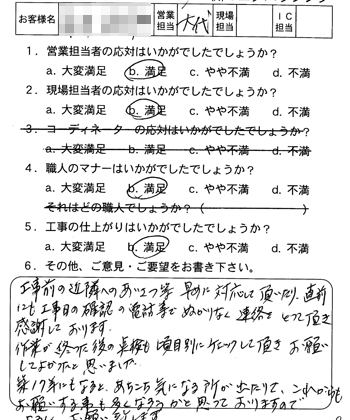 お客様名 営業担当 大代 現場担当 IC担当
1．営業担当者の応対はいかがでしたでしょうか？
a. 大変満足 b. 満足 c. やや不満 d. 不満
2．現場担当者の応対はいかがでしたでしょうか？
a. 大変満足 b. 満足 c. やや不満 d. 不満
3．コーディネーターの応対はいかがでしたでしょうか？
a. 大変満足 b. 満足 c. やや不満 d. 不満
4．職人のマナーはいかがでしたでしょうか？
a. 大変満足 b. 満足 c. やや不満 d. 不満
それはどの職人でしょうか？（ ）
5．工事の仕上がりはいかがでしたでしょうか？
a. 大変満足 b. 満足 c. やや不満 d. 不満
6．その他、ご意見・ご要望をお書き下さい。
工事前の近隣へのあいさつ等 早めに対応して頂いたり、直前
にも工事日の確認の電話等 ぬかりなく連絡をとって頂き
感謝しております。
作業が終った後の点検も項目別にチェックして頂き お願い
してよかったと思いました。
築17年にもなると、あちこち気になる所が出たりて、これからも
お願いする事も多くなろうかと思っておりますので